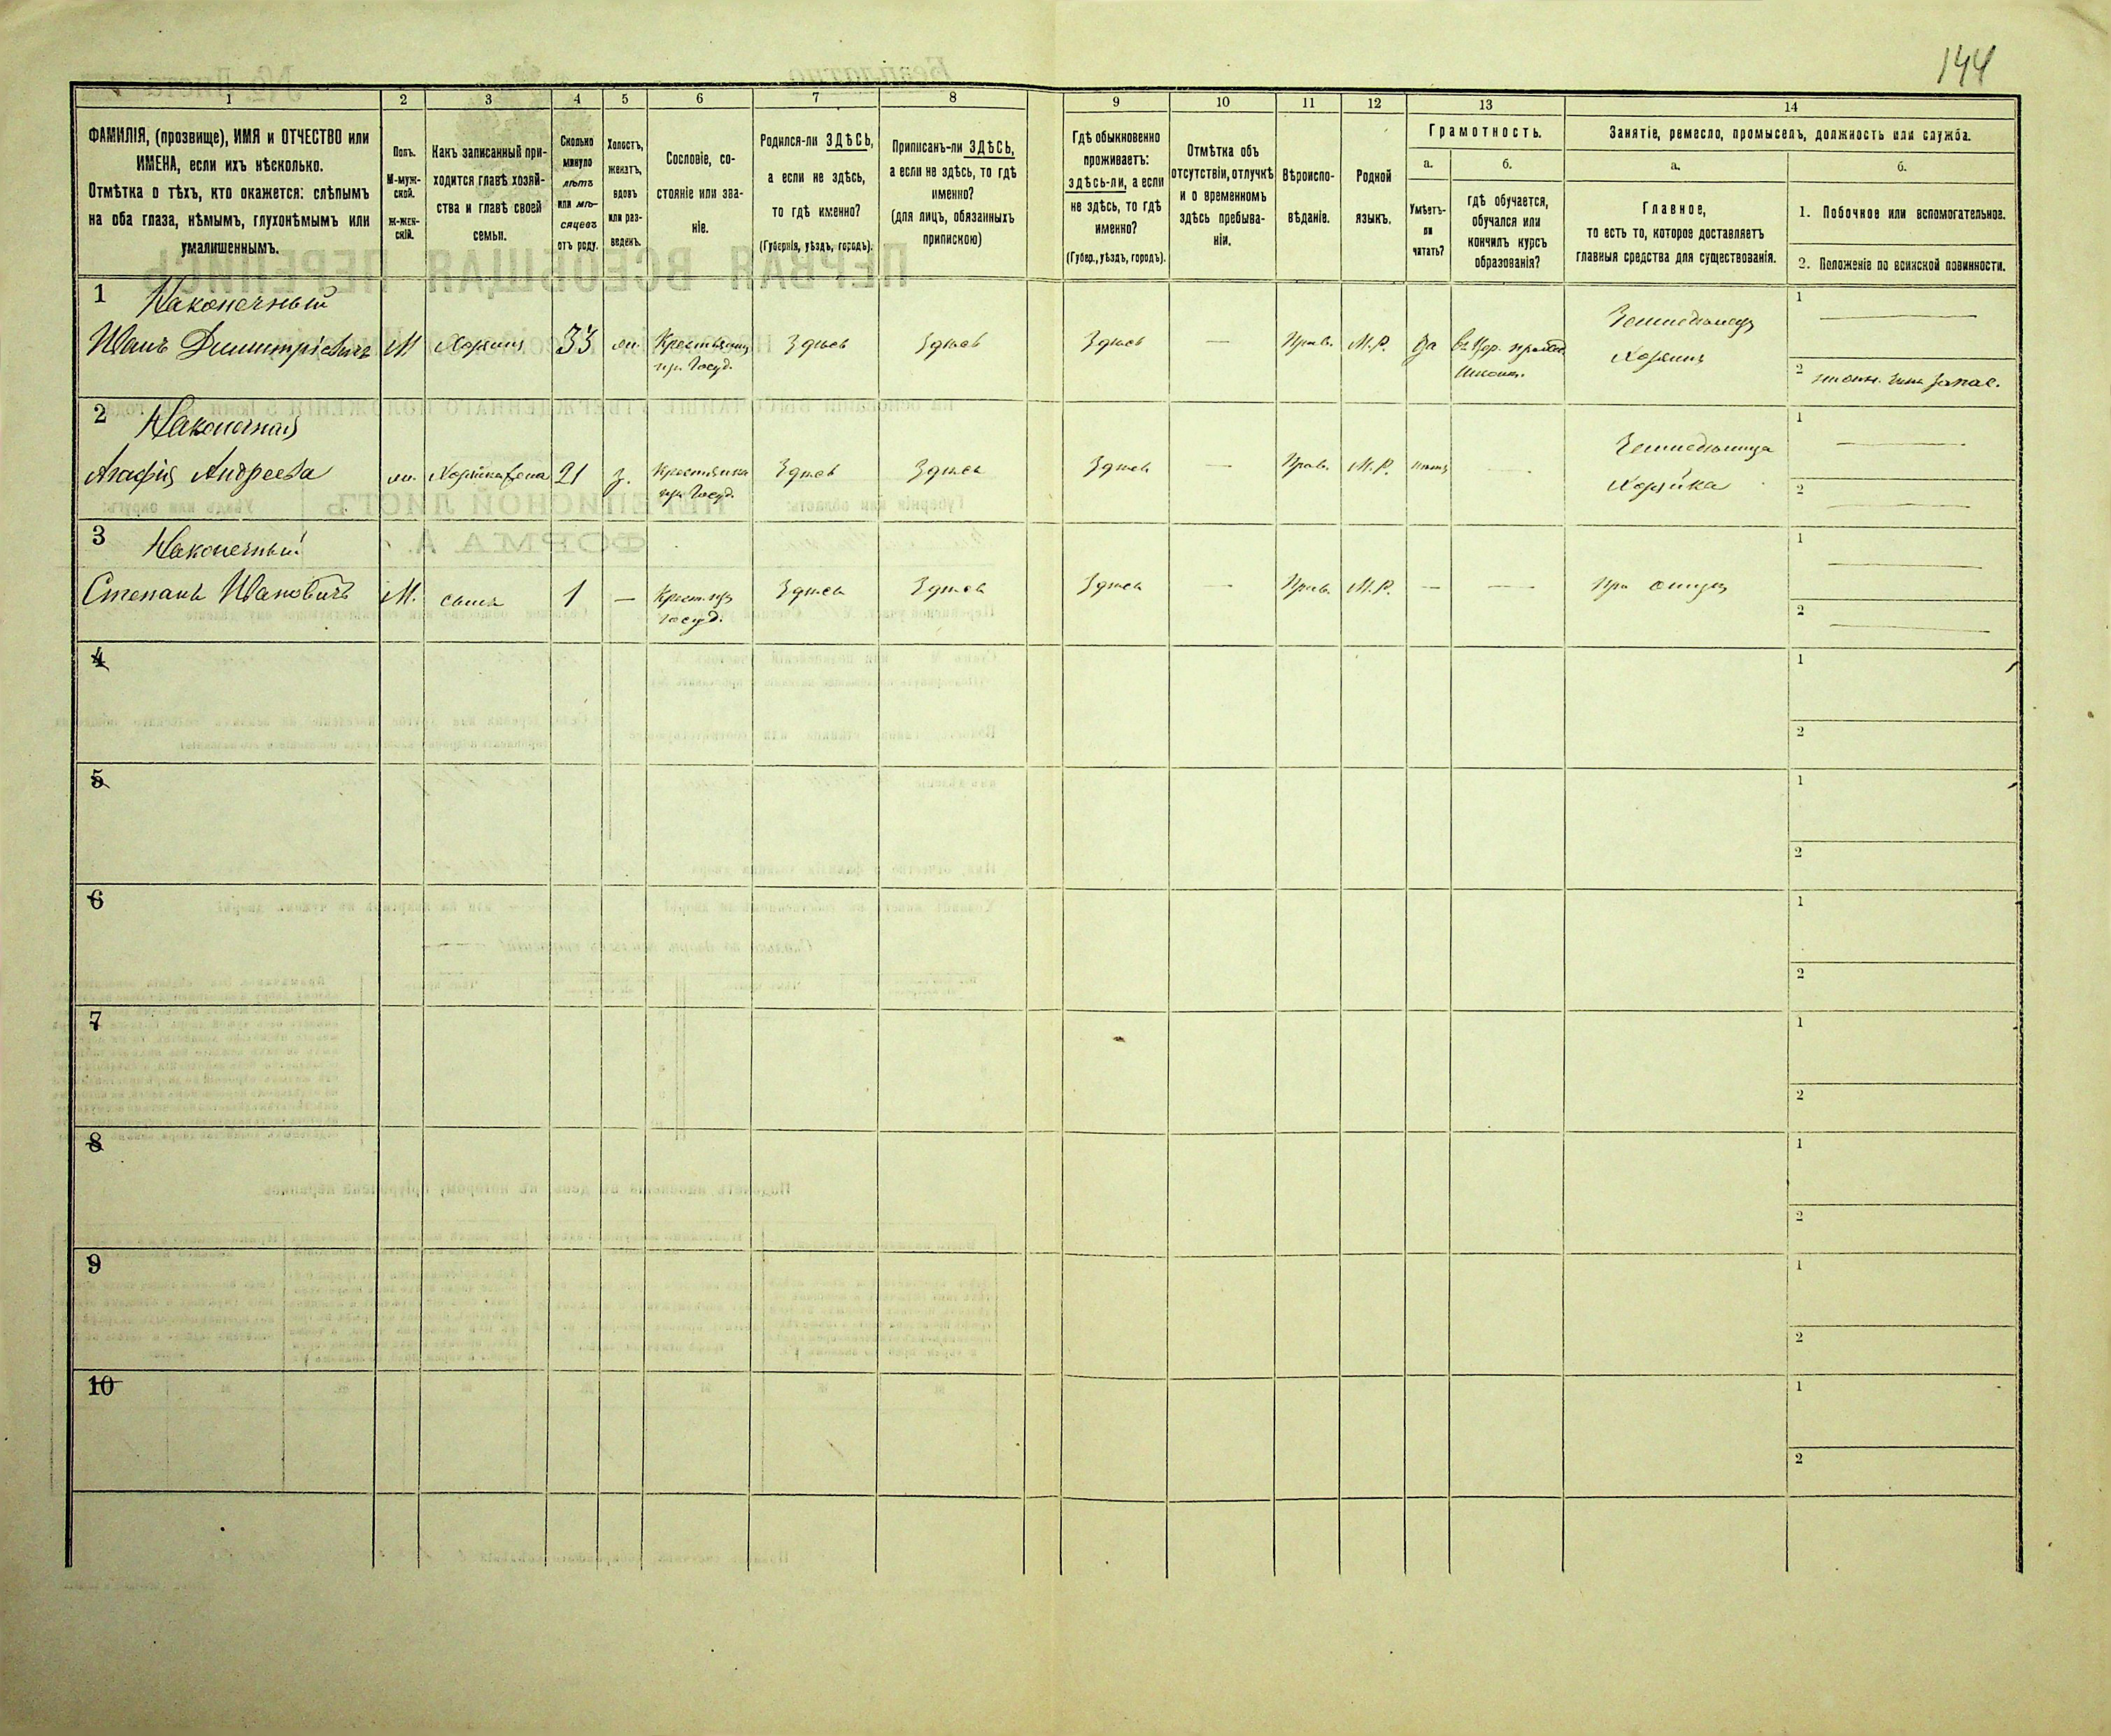 144
1 2 3 4 5 6 7 8 9 10 11 12 13 14
ФАМИЛІЯ, (прозвище), ИМЯ и ОТЧЕСТВО или
ИМЕНА, если ихъ нѣсколько.
Отмѣтка о тѣхъ, кто окажется: слѣпымъ
на оба глаза, нѣмымъ, глухонѣмымъ или
умалишеннымъ.
Полъ.
М-муж-
ской.
Ж-жен-
скій.
Какъ записанный при-
ходится главѣ хозяй-
ства и главѣ своей
семьи.
Сколько
минуло
лѣтъ
или мѣ-
сяцевъ
отъ роду.
Холостъ,
женатъ,
вдовъ
или раз-
веденъ.
Сословіе, со-
стояніе или зва-
ніе.
Родился-ли ЗДѢСЬ,
а если не здѣсь,
то гдѣ именно?
(Губернія, уѣздъ, городъ).
Приписанъ-ли ЗДѢСЬ,
а если не здѣсь, то гдѣ
именно?
(для лицъ, обязанныхъ
припискою)
Гдѣ обыкновенно
проживаетъ:
здѣсь-ли, а если
не здѣсь, то гдѣ
именно?
(Губер., уѣздъ, городъ).
Отмѣтка объ
отсутствіи, отлучкѣ
и о временномъ
здѣсь пребыва-
ніи.
Вѣроиспо-
вѣданіе.
Родной
языкъ.
Грамотность.
а. б.
Умѣетъ-
ли
читать?
гдѣ обучается,
обучался или
кончилъ курсъ
образованія?
Занятіе, ремесло, промыселъ, должность или служба.
а. б.
Главное,
то есть то, которое доставляетъ
главныя средства для существованія.
1. Побочное или вспомогательное.
2. Положеніе по воинской повинности.
1 Наконечный
Иванъ Димитріевичъ М Хозяинъ 33 Крестьянинъ Здѣсь Здѣсь Здѣсь — Прав. М.Р. Да
из Госуд. Школѣ.
Земледѣлецъ
Хозяинъ
1 —
2 запас.
2 Наконечная
Агафія Андреева Хозяйка жена 21 з. Крестьянка Здѣсь Здѣсь Здѣсь — Прав. М.Р. нѣтъ —
из Госуд.
Земледѣлица
Хозяйка
1 —
2 —
3 Наконечный
Степанъ Ивановичъ М. сынъ 1 — Крест. из Здѣсь Здѣсь Здѣсь — Прав. М.Р. — — При отцѣ
Госуд.
1 —
2 —
4 1
2
5 1
2
6 1
2
7 1
2
8 1
2
9 1
2
10 1
2